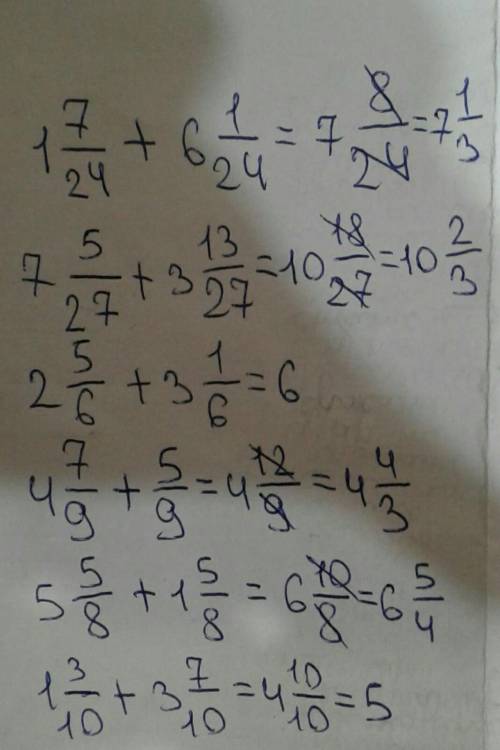 1 7/24 + 6 1/24 = 7 8/24 = 7 1/3
7 5/27 + 3 13/27 = 10 18/27 = 10 2/3
2 5/6 + 3 1/6 = 6
4 7/9 + 5/9 = 4 12/9 = 4 4/3
5 5/8 + 1 5/8 = 6 10/8 = 6 5/4
1 3/10 + 3 7/10 = 4 10/10 = 5